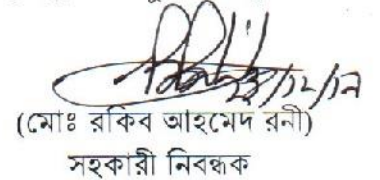 ২৪/১২/১৭
(মোঃ রকিব আহমেদ রনী)
সহকারী নিবন্ধক